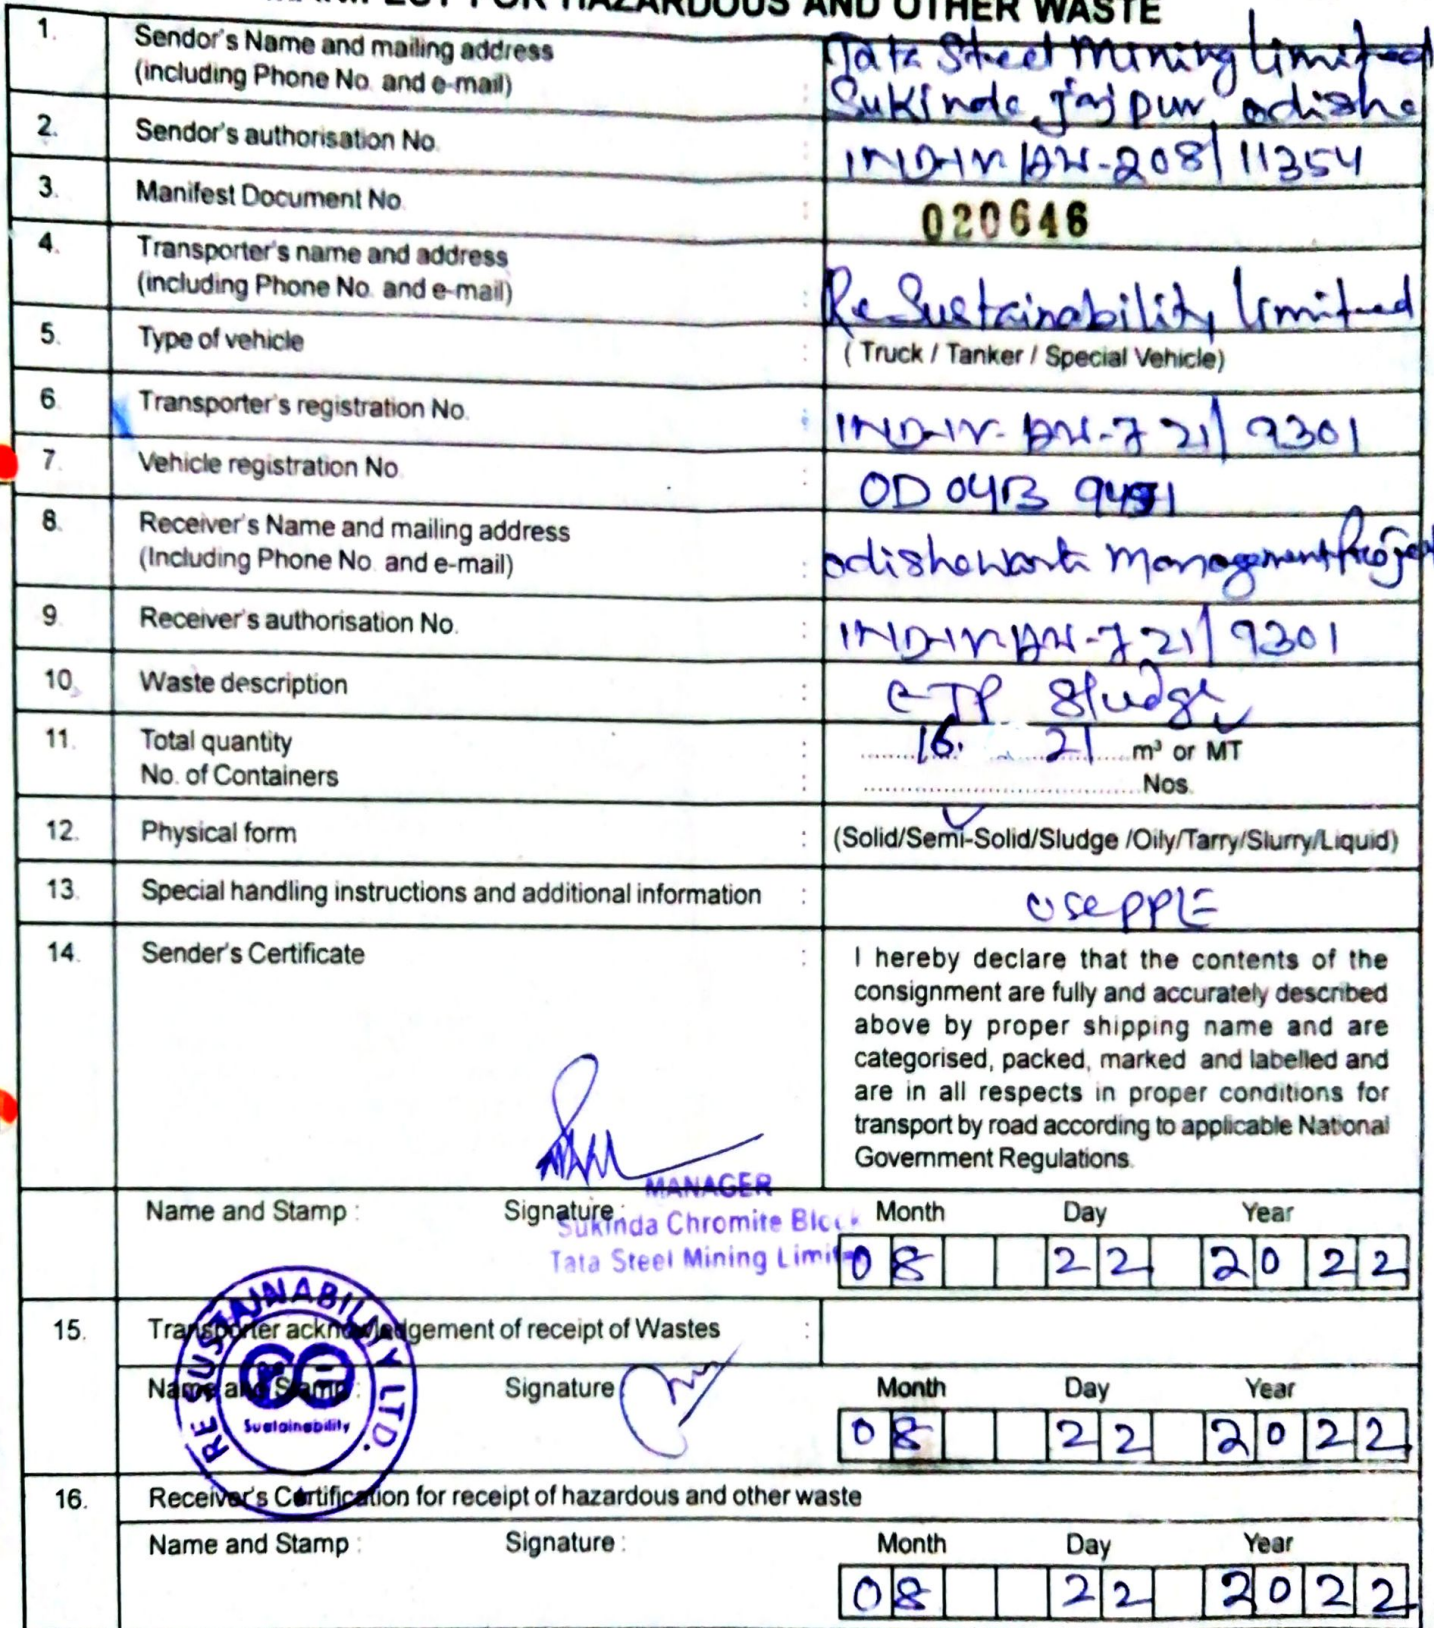 MANIFEST FOR HAZARDOUS AND OTHER WASTE
1. Sendor's Name and mailing address : Tata Steel Mining Limited
(including Phone No. and e-mail) Sukinda, Jajpur, odisha
2. Sendor's authorisation No. : IND-IV-HW-208/11354
3. Manifest Document No. : 020646
4. Transporter's name and address
(including Phone No. and e-mail) : Re Sustainability Limited
5. Type of vehicle : ( Truck / Tanker / Special Vehicle)
6. Transporter's registration No. : IND-IV-HW-721/9301
7. Vehicle registration No. : OD04B
8. Receiver's Name and mailing address
(Including Phone No. and e-mail) : odisha Waste Management Project
9. Receiver's authorisation No. : IND-IV-HW-721/9301
10. Waste description : ETP Sludge
11. Total quantity : 16. 21 m³ or MT
No. of Containers : Nos.
12. Physical form : (Solid/Semi-Solid/Sludge /Oily/Tarry/Slurry/Liquid)
13. Special handling instructions and additional information : Use PPE
14. Sender's Certificate : I hereby declare that the contents of the
consignment are fully and accurately described
above by proper shipping name and are
categorised, packed, marked and labelled and
are in all respects in proper conditions for
transport by road according to applicable National
Government Regulations.
MANAGER
Name and Stamp : Signature : Month Day Year
Sukinda Chromite Block
Tata Steel Mining Limited
08 22 2022
15. Transporter acknowledgement of receipt of Wastes :
RE SUSTAINABILITY LTD.
Sustainability
Name and Stamp : Signature Month Day Year
08 22 2022
16. Receiver's Certification for receipt of hazardous and other waste
Name and Stamp : Signature : Month Day Year
08 22 2022